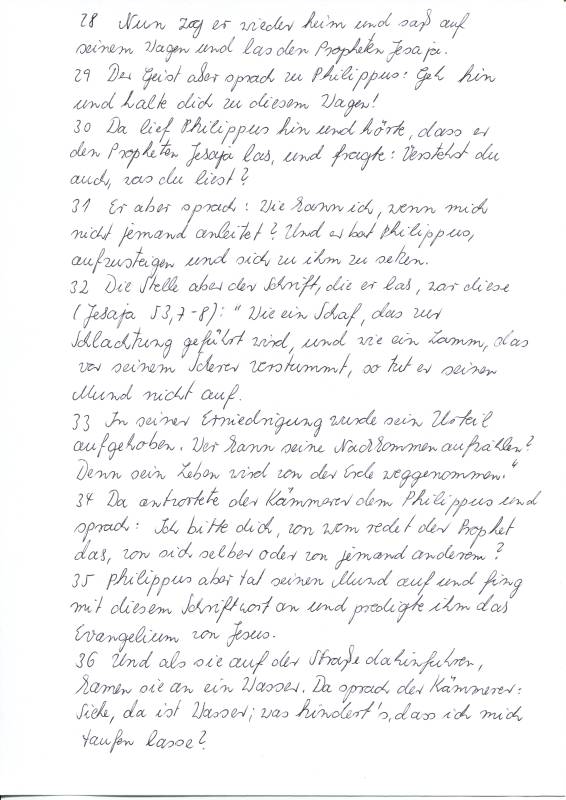 28 Nun zog er wieder heim und saß auf
seinem Wagen und las den Propheten Jesaja.
29 Der Geist aber sprach zu Philippus: Geh hin
und halte dich zu diesem Wagen!
30 Da lief Philippus hin und hörte, dass er
den Propheten Jesaja las, und fragte: Verstehst du
auch, was du liest?
31 Er aber sprach: Wie kann ich, wenn mich
nicht jemand anleitet? Und er bat Philippus,
aufzusteigen und sich zu ihm zu setzen.
32 Die Stelle aber der Schrift, die er las, war diese
(Jesaja 53,7-8): "Wie ein Schaf, das zur
Schlachtung geführt wird, und wie ein Lamm, das
vor seinem Scherer verstummt, so tut er seinen
Mund nicht auf.
33 In seiner Erniedrigung wurde sein Urteil
aufgehoben. Wer kann seine Nachkommen aufzählen?
Denn sein Leben wird von der Erde weggenommen."
34 Da antwortete der Kämmerer dem Philippus und
sprach: Ich bitte dich, von wem redet der Prophet
das, von sich selber oder von jemand anderem?
35 Philippus aber tat seinen Mund auf und fing
mit diesem Schriftwort an und predigte ihm das
Evangelium von Jesus.
36 Und als sie auf der Straße dahinfuhren,
kamen sie an ein Wasser. Da sprach der Kämmerer:
Siehe, da ist Wasser; was hindert's, dass ich mich
taufen lasse?